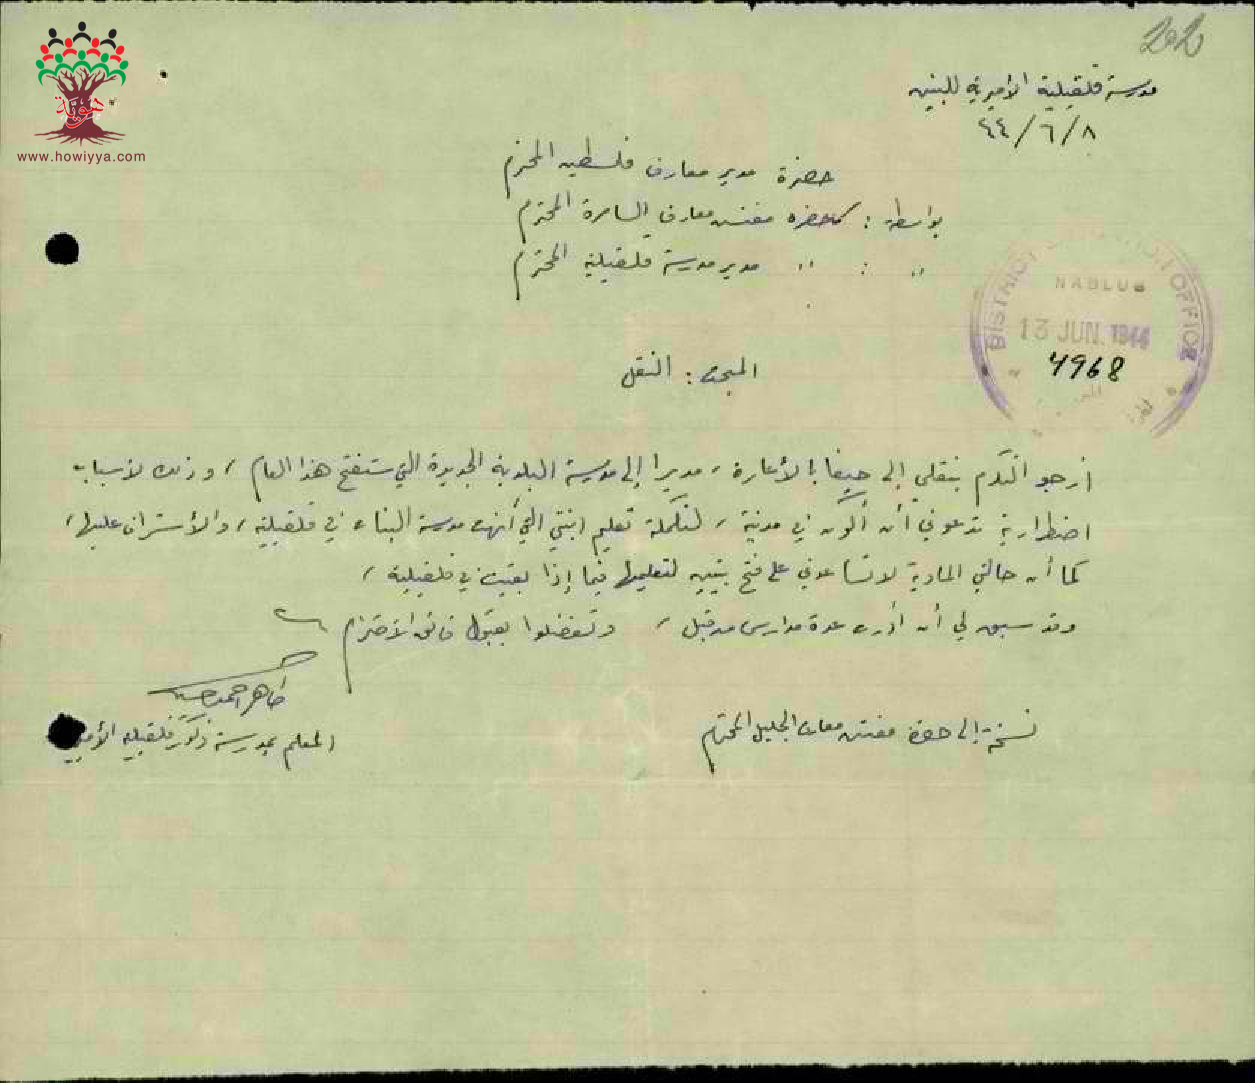 202
هوية
www.howiyya.com
مدرسة قلقيلية الأميرية للبنين
٤٤/٦/٨
حضرة مدير معارف فلسطين المحترم
بواسطة : حضرة مفتش معارف السامرة المحترم
" : " مدير مدرسة قلقيلية المحترم
DISTRICT OFFICE
NABLUS
13 JUN. 1944
4968
المبحث : النقل
أرجو التكرم بنقلي إلى حيفا بالأعارة، مديرا إلى مدرسة البلدية الجديدة التي ستفتح هذا العام، وذلك لأسباب
اضطرارية تدعوني أن أكون في مدينة، لتكملة تعليم ابنتي التي أنهت مدرسة البنات في قلقيلية، والأشراف عليها،
كما أن حالتي المادية لا تساعدني على فتح بيتين لتعليمها فيما إذا بقيت في قلقيلية،
وقد سبق لي أن أدرت عدة مدارس من قبل، وتفضلوا بقبول فائق الاحترام
طاهر احمد حسين
المعلم بمدرسة ذكور قلقيلية الأميرية
نسخة إلى حضرة مفتش معارف الجليل المحترم